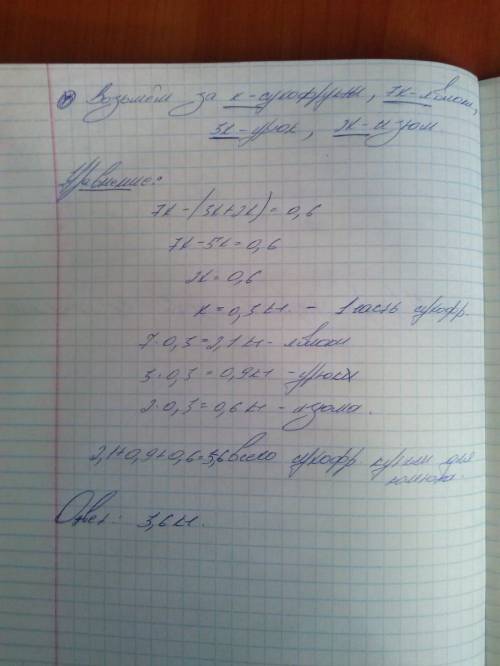 Возьмём за к-сухофрукты, 7к-яблоки,
3к-урюк, 2к-изюм
Уравнение:
7к-(3к+2к)=0,6
7к-5к=0,6
2к=0,6
к=0,3кг. - 1 часть сухофр
7·0,3=2,1кг-яблоки
3·0,3=0,9кг-урюка
2·0,3=0,6кг-изюма.
2,1+0,9+0,6=3,6 всего сухофр купили для
компота.
Ответ: 3,6кг.